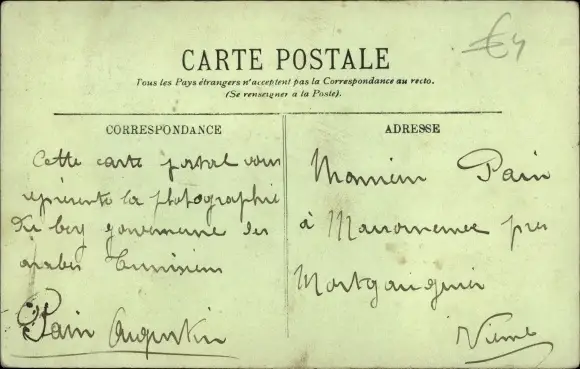 €4
CARTE POSTALE
Tous les Pays étrangers n'acceptent pas la Correspondance au recto.
(Se renseigner à la Poste).
CORRESPONDANCE
Cette carte postal vous
représente la photographie
du bey gouverneur des
arabes Tunisiens
Pain Augustin
ADRESSE
Monsieur Pain
à près
Vienne